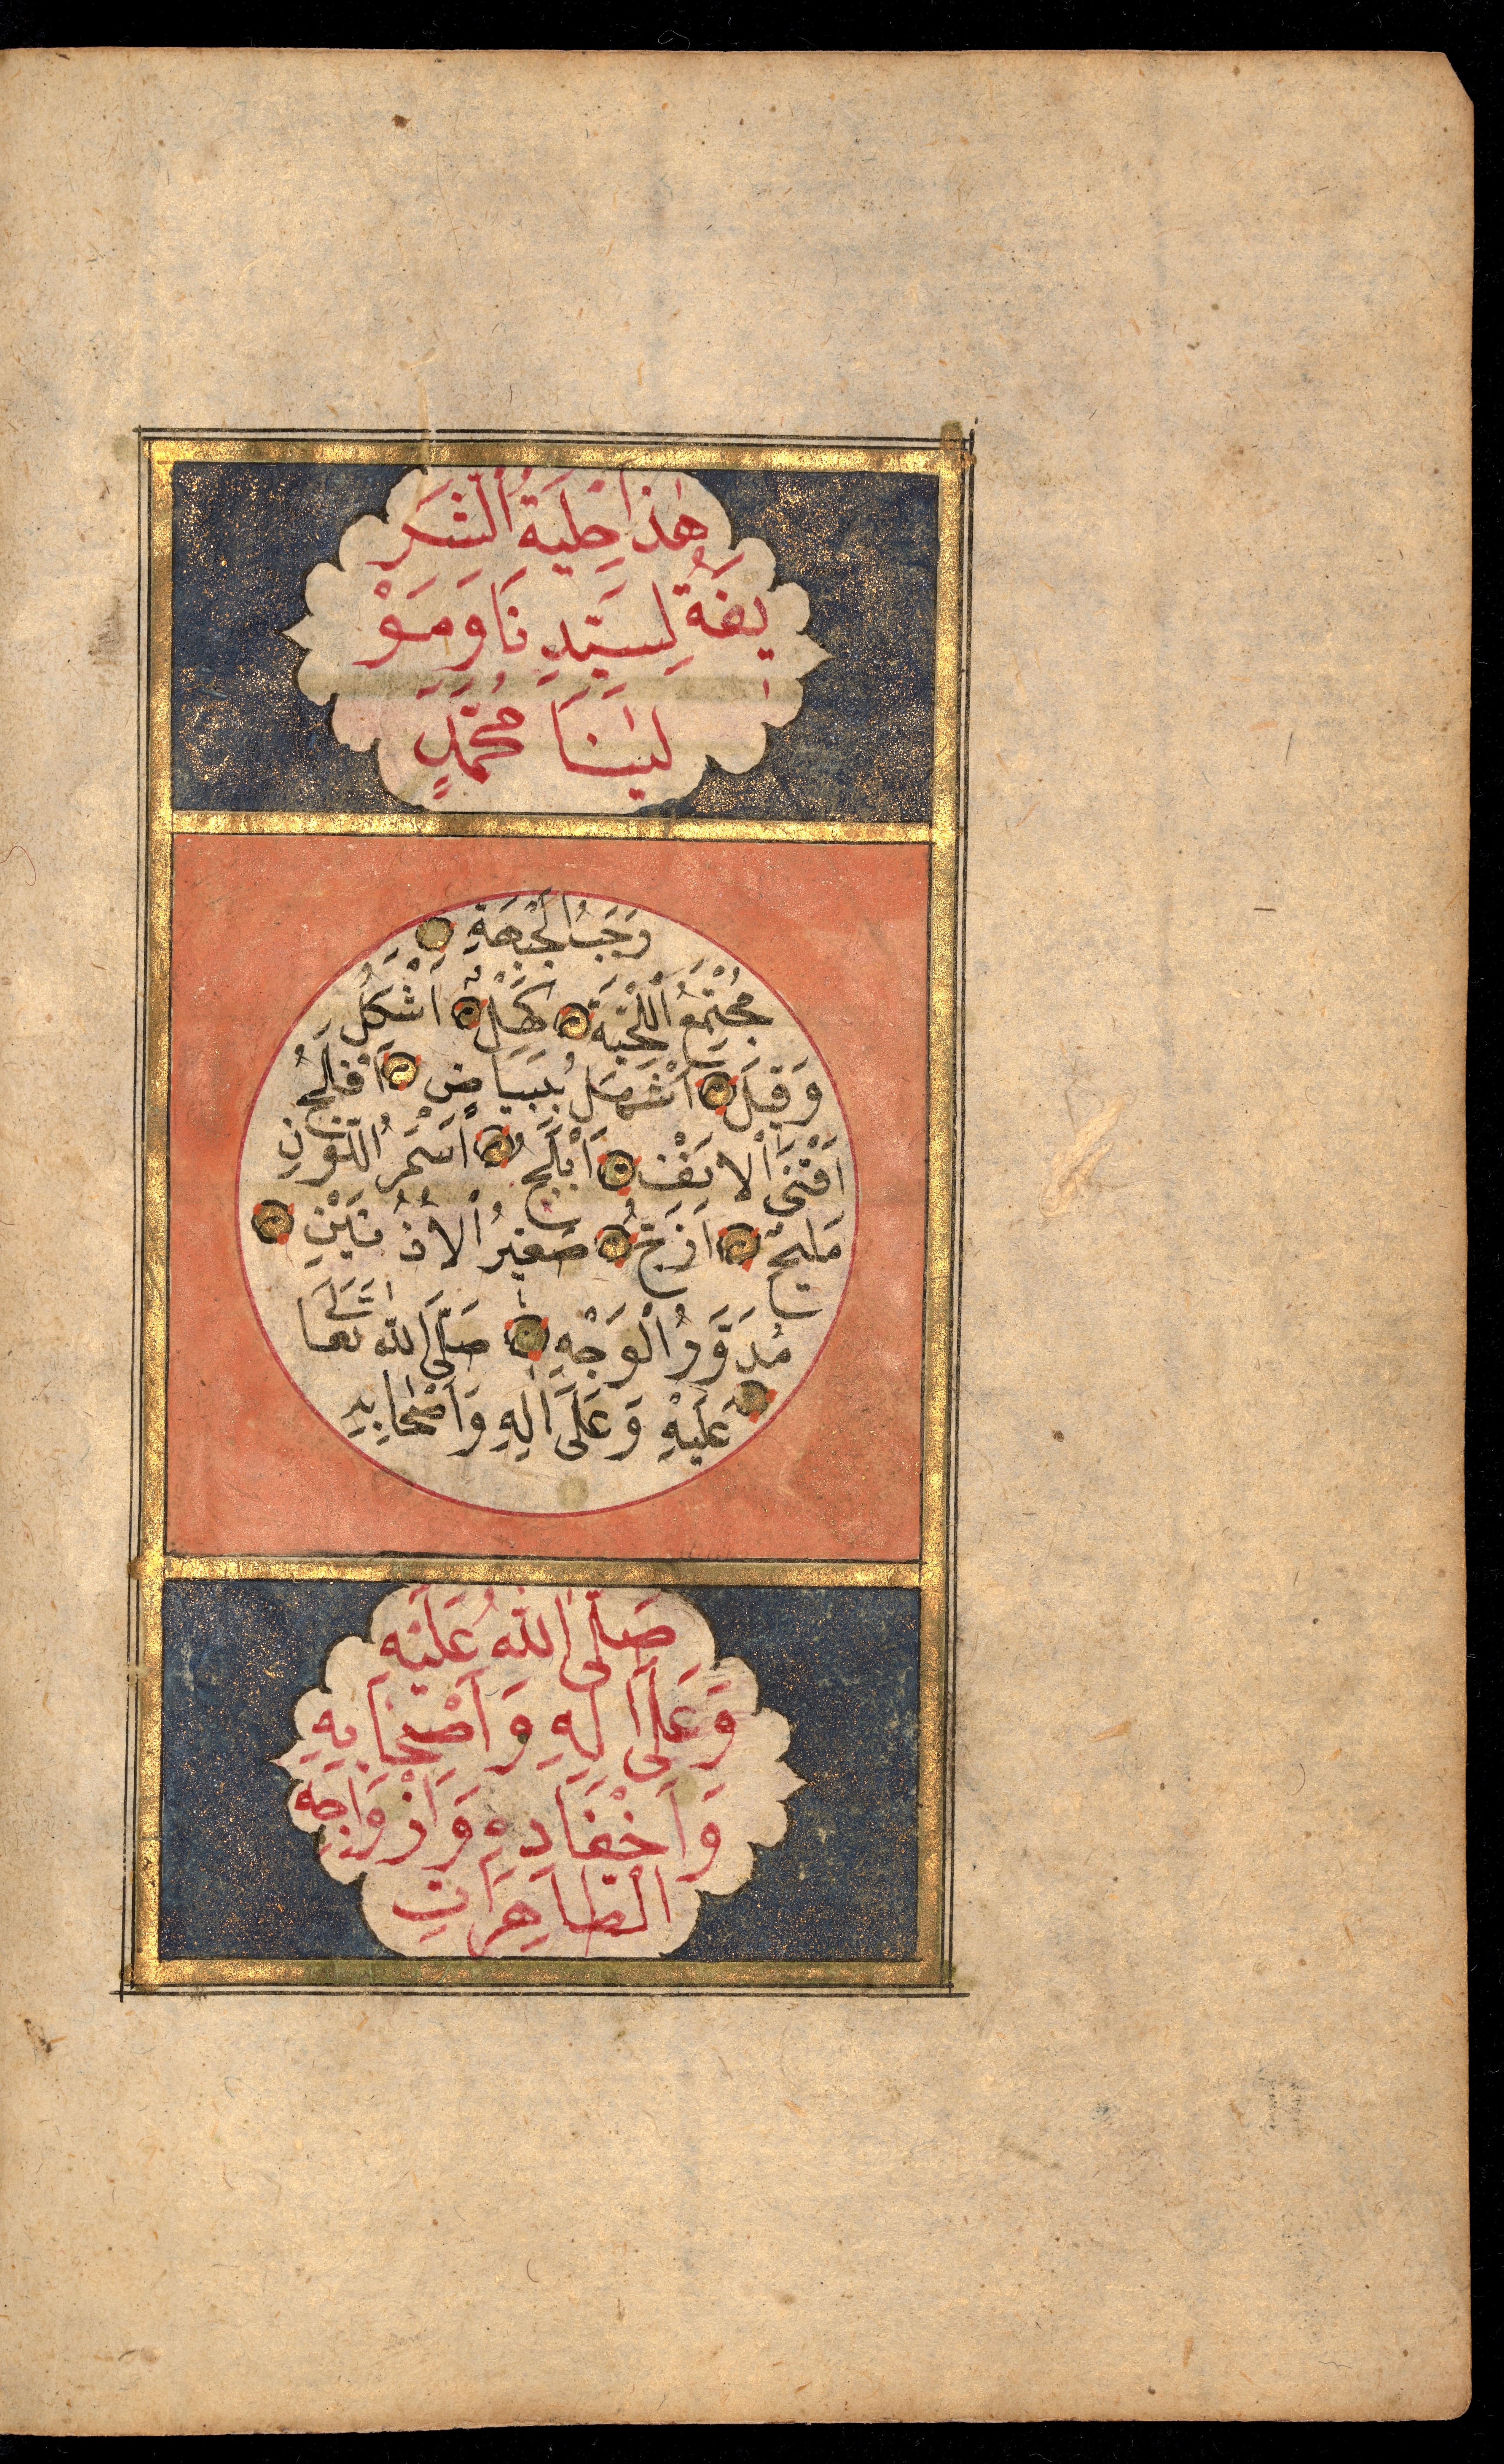 هٰذَا حِلْيَةُ الشَّرَ
يفَةُ لِسَيِّدِ نَا وَمَوْ
لٰينَا مُحَمَّدٍ
رَحَبُ الْجَبْهَةِ
مُجْتَمِعُ اللِّحْيَةِ كَحِلٌ اَشْكَلُ
وَقِيلَ اَشْهَلُ بِبَيَاضٍ اَفْلَجُ
اَقْنَى الْاَنْفِ اَبْلَجُ اَسْمَرُ اللَّوْنِ
مَلِيحٌ اَزَجُّ صَغِيرُ الْاُذُنَيْنِ
مُدَوَّرُ الْوَجْهِ صَلَّى اللّٰه تَعَالَى
عَلَيْهِ وَعَلَى اٰلِهِ وَاَصْحَابِهِ
صَلَّى اللّٰهُ عَلَيْهِ
وَعَلَى اٰلِهِ وَاَصْحَابِهِ
وَاَحْفَادِهِ وَاَزْوَاجِهِ
الطَّاهِرَاتِ